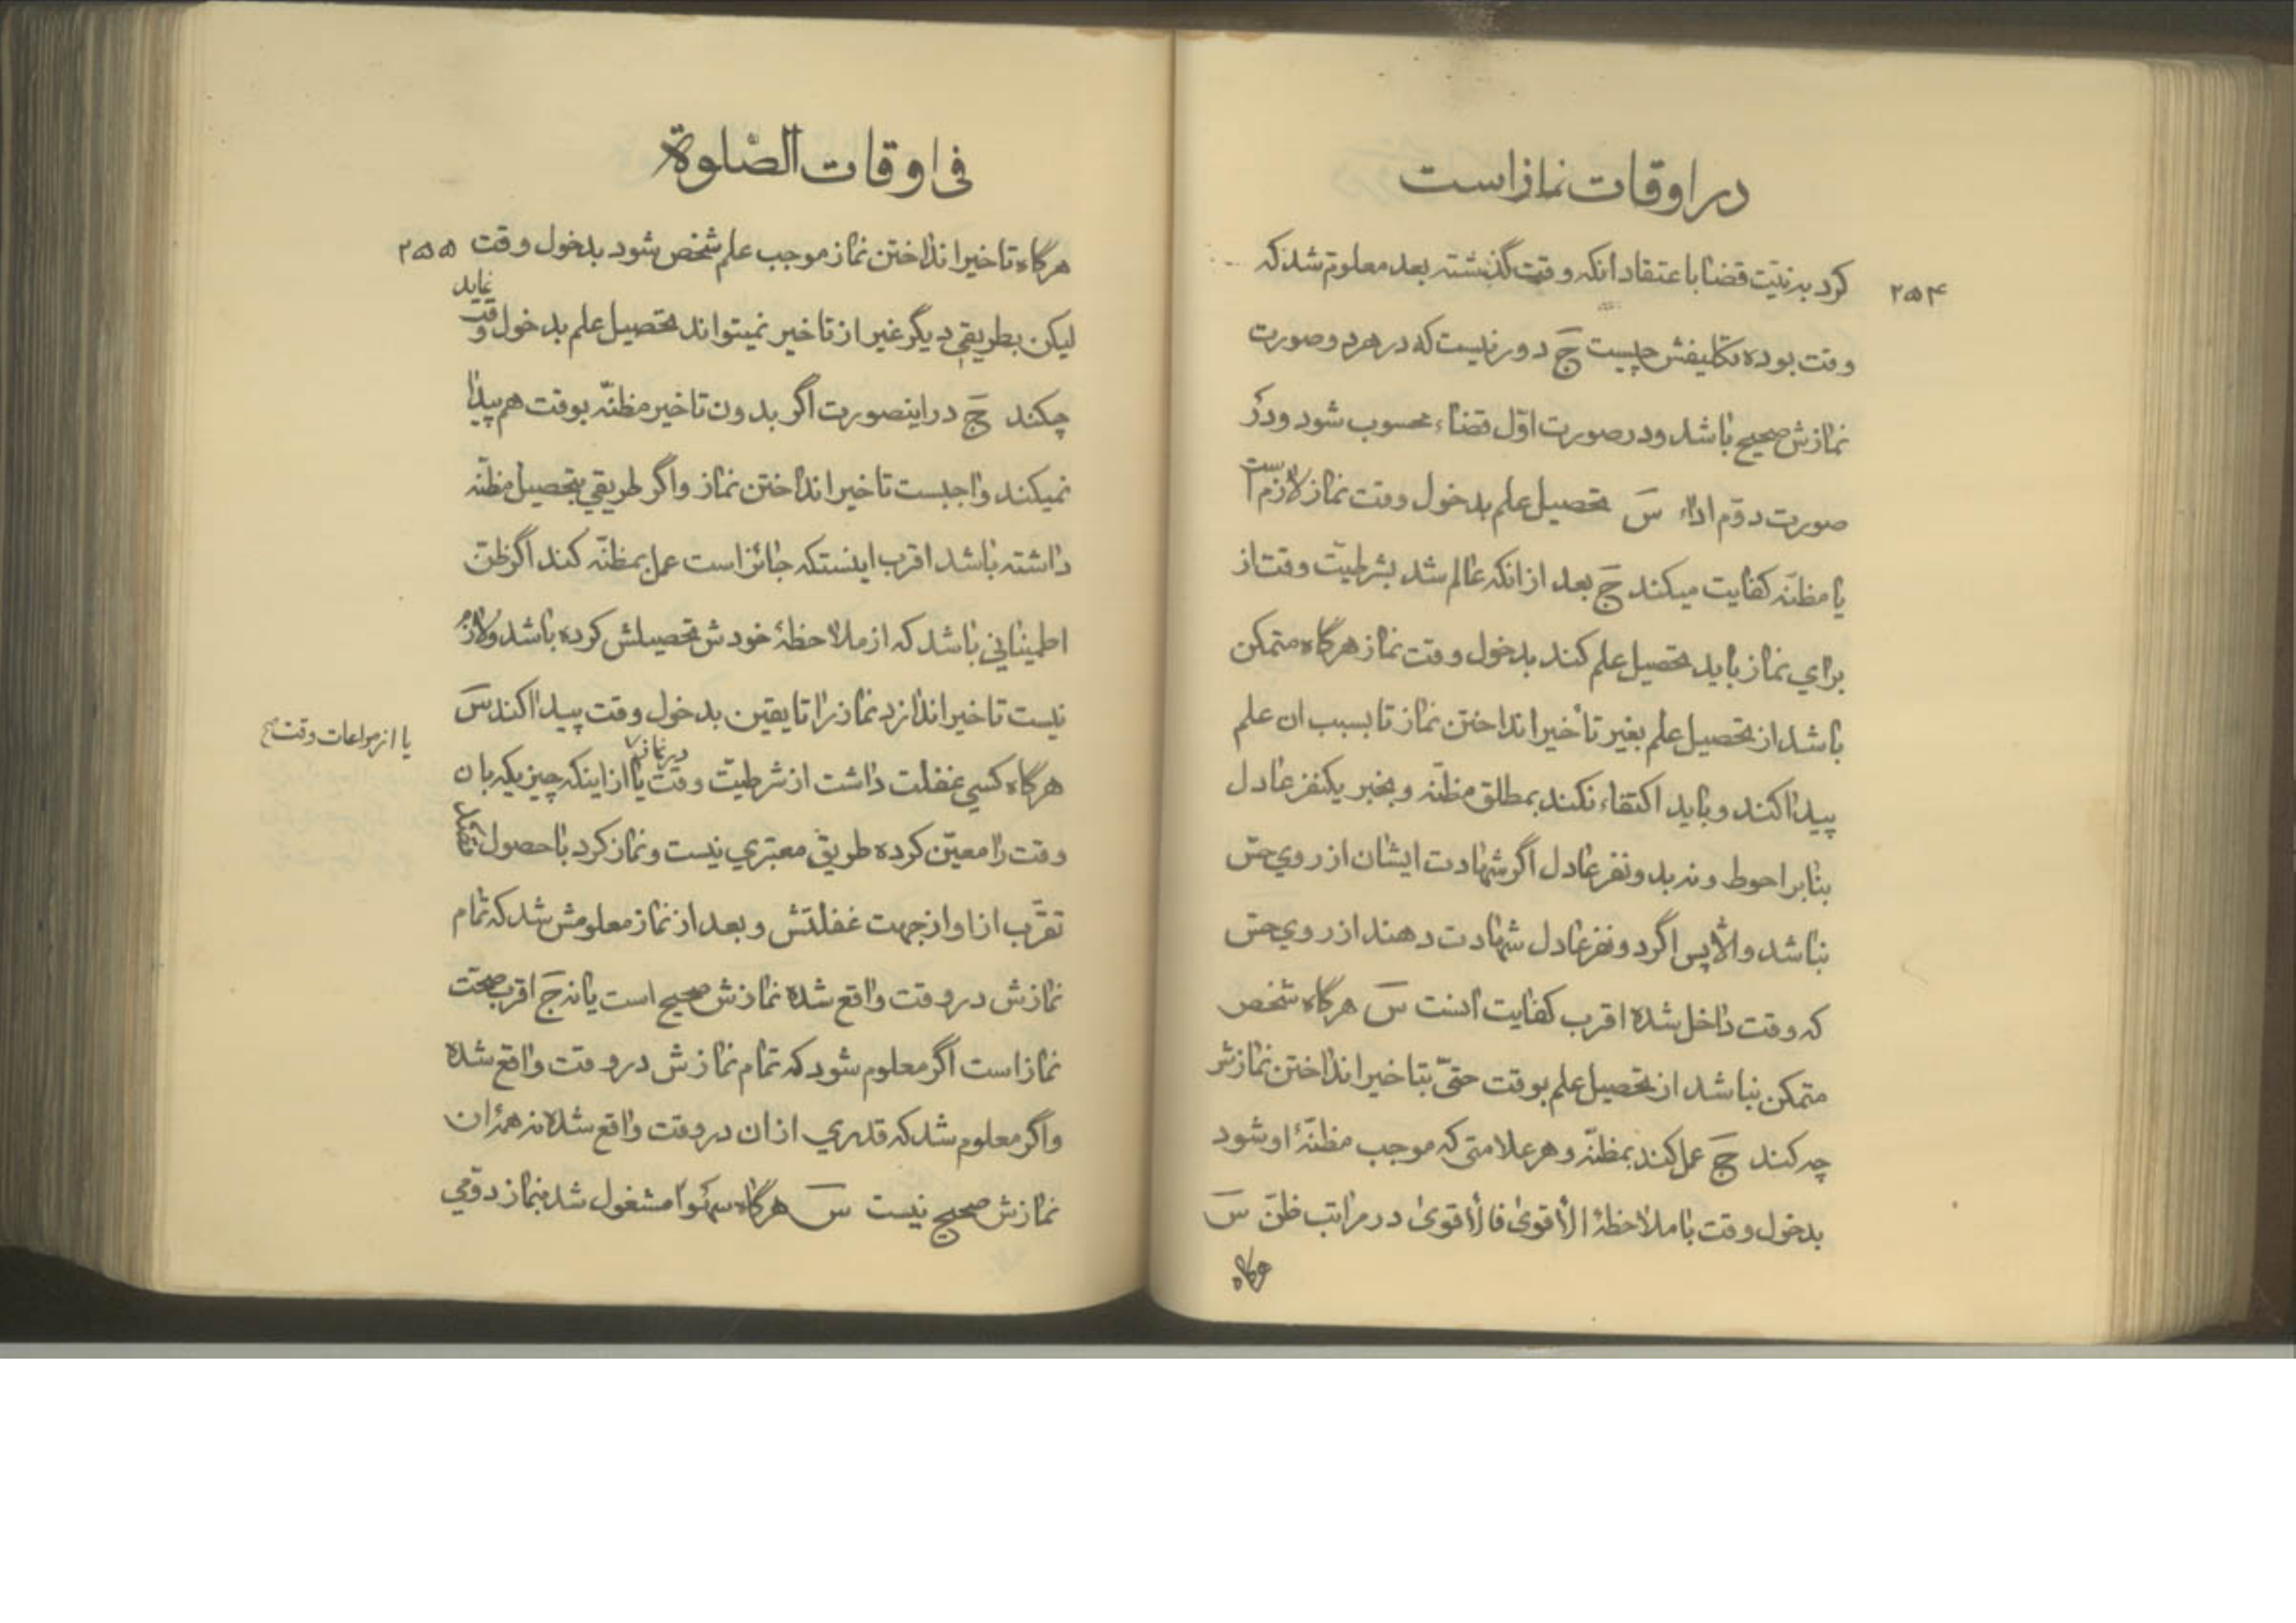 در اوقات نماز است
۲۵۴
کرد به نیّت قضا با عتقاد انکه وقت گذشته بعد معلوم شد که
وقت بوده تکلیفش چیست جَ دور نیست که در هر دو صورت
نمازش صحیح باشد و در صورت اوّل قضاء محسوب شود و در
صورت دوّم اداء سَ تحصیل علم بدخول وقت نماز لازم است
یا مظنّه کفایت میکند جَ بعد از انکه عالم شد بشرطیّت وقت از
برای نماز باید تحصیل علم کند بدخول وقت نماز هرگاه متمکن
باشد از تحصیل علم بغیر تأخیر انداختن نماز تا بسبب ان علم
پیدا کند و باید اکتفاء نکند بمطلق مظنّه و بخبر یکنفر عادل
بنابر احوط و نه بدو نفر عادل اگر شهادت ایشان از روی حسّ
نباشد والّا پس اگر دو نفر عادل شهادت دهند از روی حسّ
که وقت داخل شده اقرب کفایت انست سَ هرگاه شخص
متمکن نباشد از تحصیل علم بوقت حتّی بتاخیر انداختن نمازش
چه کند جَ عمل کند بمظنّه و هر علامتی که موجب مظنّهٔ او شود
بدخول وقت با ملاحظهٔ الأقوی فالأقوی در مراتب ظنّ سَ
هرگاه
فی اوقات الصّلوة
۲۵۵
هرگاه تاخیر انداختن نماز موجب علم شخص شود بدخول وقت
لیکن بطریقی دیگر غیر از تاخیر نمیتواند تحصیل علم بدخول وقت نماید
چکند جَ در اینصورت اگر بدون تاخیر مظنّه بوقت هم پیدا
نمیکند واجبست تاخیر انداختن نماز و اگر طریقی بتحصیل مظنّه
داشته باشد اقرب اینستکه جائز است عمل بمظنّه کند اگر ظنّ
اطمینانی باشد که از ملاحظهٔ خودش تحصیلش کرده باشد و لازم
نیست تاخیر اندازد نماز را تا یقین بدخول وقت پیدا کند سَ
هرگاه کسی غفلت داشت از شرطیّت وقت در نماز یا از اینکه چیزیکه بان
یا از مراعات وقت صح
وقت را معیّن کرده طریق معتبری نیست و نماز کرد با حصول قصد
تقرّب از او از جهت غفلتش و بعد از نماز معلومش شد که تمام
نمازش در وقت واقع شده نمازش صحیح است یا نه جَ اقرب صحّت
نماز است اگر معلوم شود که تمام نمازش در وقت واقع شده
و اگر معلوم شد که قدری از ان در وقت واقع شده نه همهٔ ان
نمازش صحیح نیست سَ هرگاه سهوًا مشغول شد بنماز دوّمی